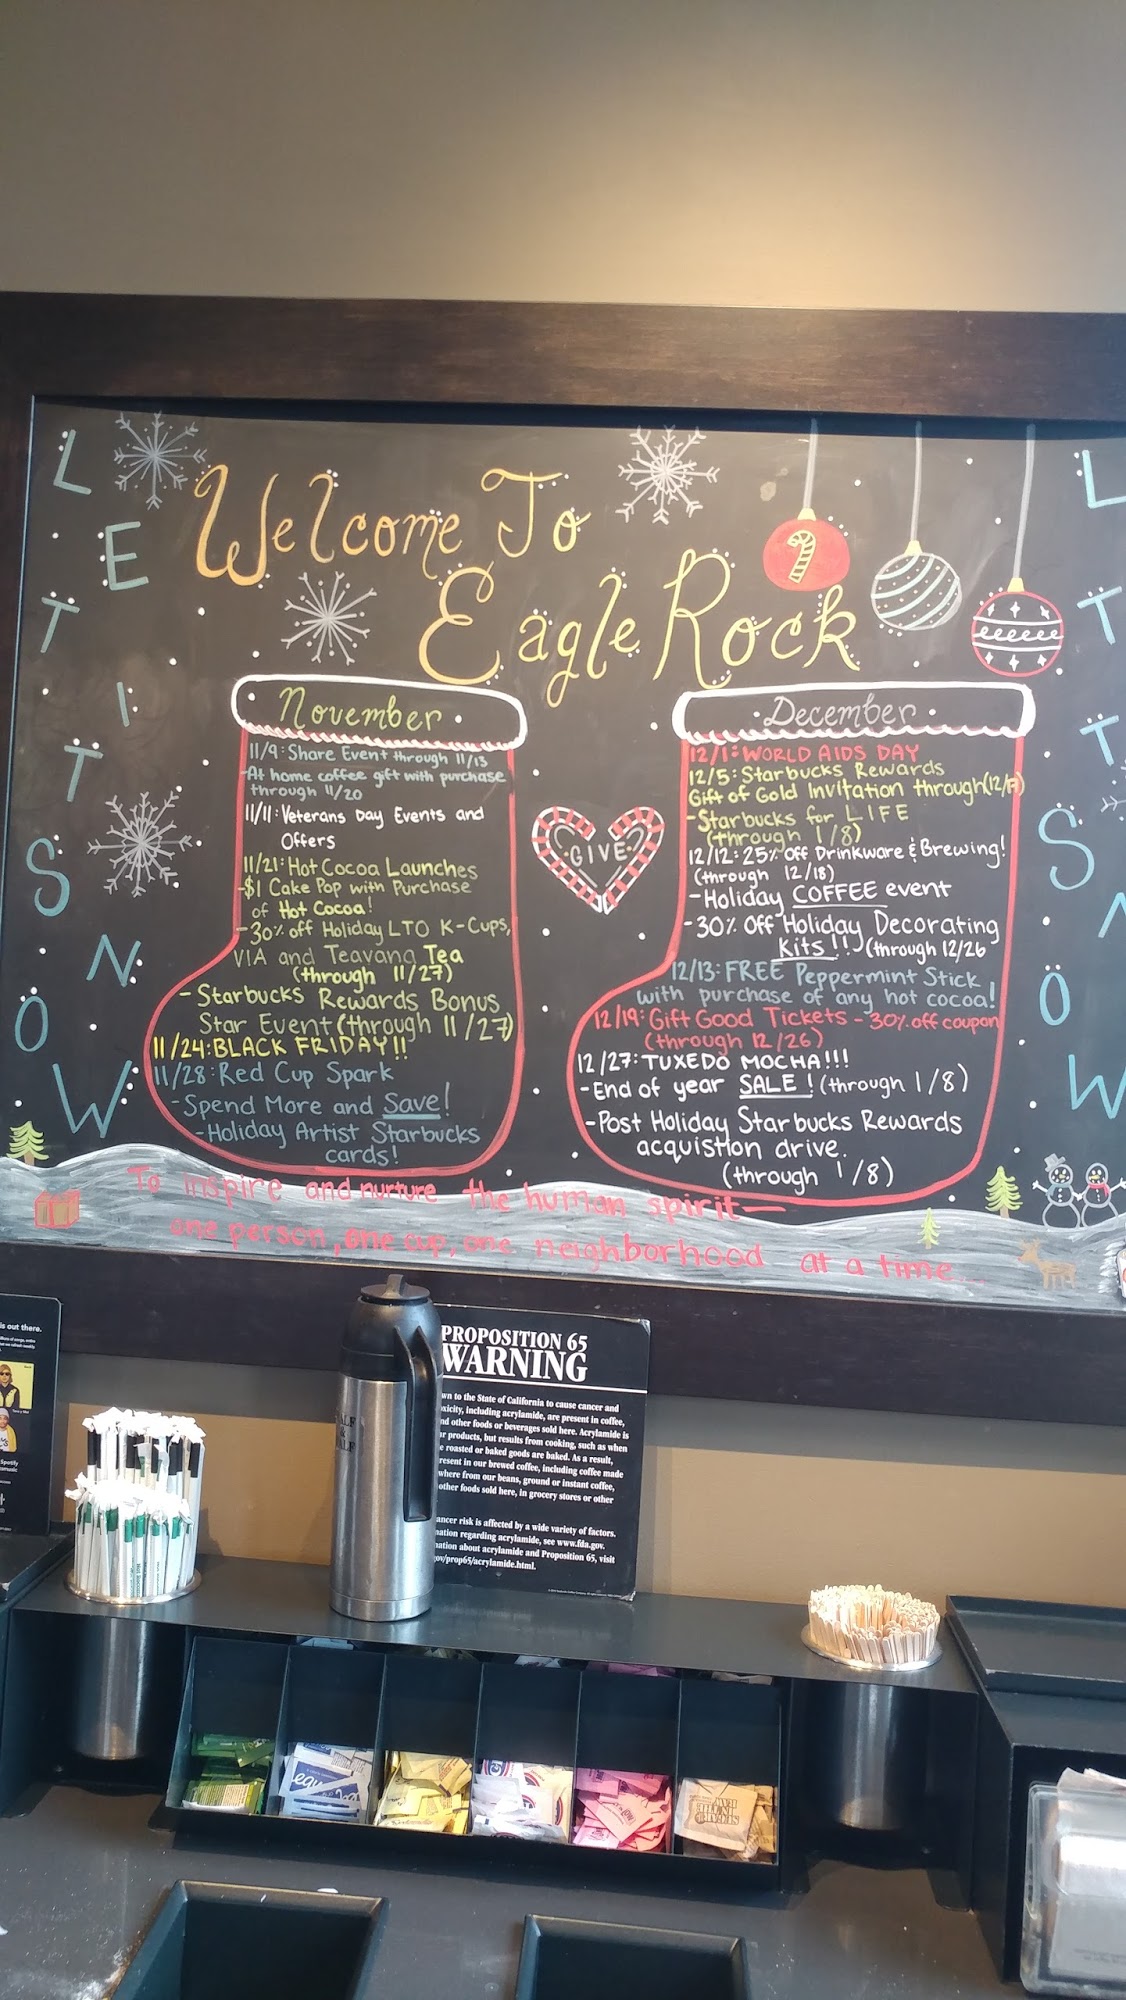 LET IT SNOW
Welcome To
Eagle Rock
November
11/9: Share Event through 11/13
-At home coffee gift with purchase
through 11/20
11/11: Veterans Day Events and
Offers
11/21: Hot Cocoa Launches
-$1 Cake Pop with Purchase
of Hot Cocoa!
-30% off Holiday LTO K-Cups,
VIA and Teavana Tea
(through 11/27)
-Starbucks Rewards Bonus
Star Event (through 11/27)
11/24: BLACK FRIDAY!!
11/28: Red Cup Spark
-Spend More and Save!
-Holiday Artist Starbucks
cards!
GIVE
December
12/1: WORLD AIDS DAY
12/5: Starbucks Rewards
Gift of Gold Invitation through (12/17)
-Starbucks for LIFE
(through 1/8)
12/12: 25% Off Drinkware & Brewing!
(through 12/18)
-Holiday COFFEE event
-30% Off Holiday Decorating
Kits!! (through 12/26
12/13: FREE Peppermint Stick
with purchase of any hot cocoa!
12/19: Gift Good Tickets - 30% off coupon
(through 12/26)
12/27: TUXEDO MOCHA!!!
-End of year SALE! (through 1/8)
-Post Holiday Starbucks Rewards
acquistion drive.
(through 1/8)
L T S N O W
To inspire and nurture the human spirit—
one person, one cup, one neighborhood at a time...
is out there.
Spotify
HALF
&
HALF
PROPOSITION 65
WARNING
wn to the State of California to cause cancer and
oxicity, including acrylamide, are present in coffee,
nd other foods or beverages sold here. Acrylamide is
r products, but results from cooking, such as when
e roasted or baked goods are baked. As a result,
resent in our brewed coffee, including coffee made
where from our beans, ground or instant coffee,
other foods sold here, in grocery stores or other
ancer risk is affected by a wide variety of factors.
nation regarding acrylamide, see www.fda.gov.
nation about acrylamide and Proposition 65, visit
gov/prop65/acrylamide.html.